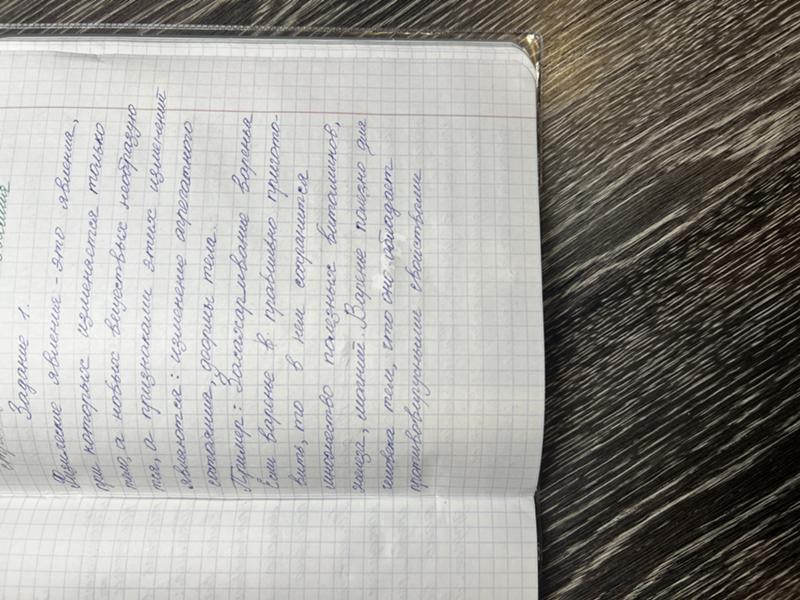 Задание 1.
Физические явления - это явления,
при которых изменяется только
тел, а новых веществ необразую
тся, а признаками этих изменений
являются: изменение агрегатного
состояния, формы тела.
Пример: Засахаривание варенья
Если варенье в правильно пригото-
вить, то в нем сохранится
множество полезных витаминов,
магний. Варенье полезно для
человека тем, что оно обладает
противовирусными свойствами